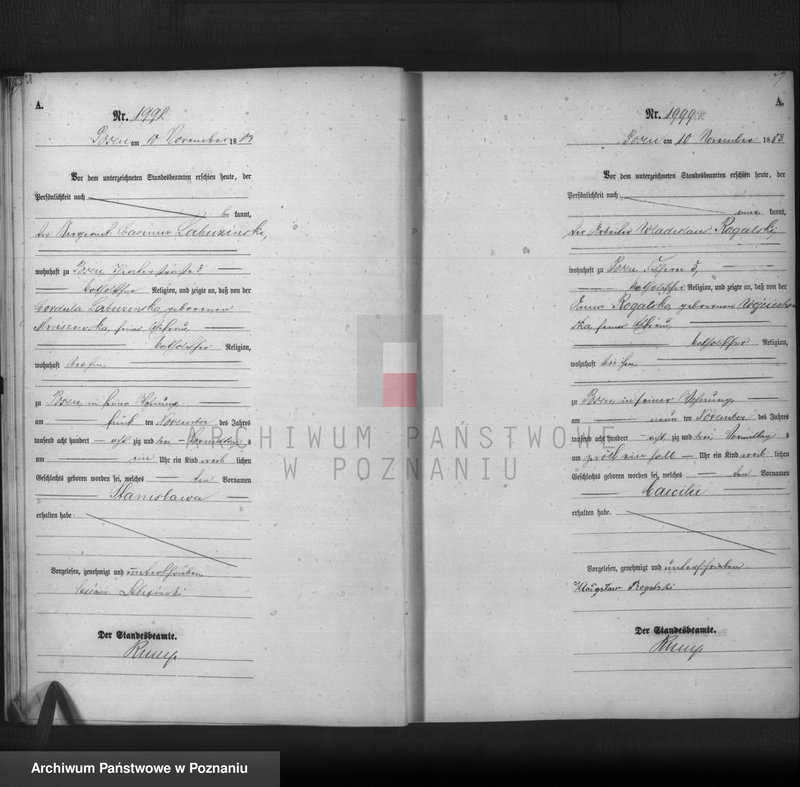 A.
Nr. 1998.
Posen am 10 November 1883
Vor dem unterzeichneten Standesbeamten erschien heute, der
Persönlichkeit nach
be kannt,
der Sergeant Casimir
wohnhaft zu Posen
katholischer Religion, und zeigte an, daß von der
Cordula geborenen
seiner Ehefrau,
katholischer Religion,
wohnhaft bei ihm
zu Posen in seiner Wohnung
am fünf ten November des Jahres
tausend acht hundert acht zig und drei Vormittags
um ein Uhr ein Kind weib lichen
Geschlechts geboren worden sei, welches den Vornamen
Stanislawa
erhalten habe.
Vorgelesen, genehmigt und unterschrieben
Der Standesbeamte.
Rump
A.
Nr. 1999.
Posen am 10 November 1883.
Vor dem unterzeichneten Standesbeamten erschien heute, der
Persönlichkeit nach
kannt,
der Arbeiter Wladislaus Rogalski,
wohnhaft zu Posen
katholischer Religion, und zeigte an, daß von der
Rogalska geborenen
seiner Ehefrau,
katholischer Religion,
wohnhaft bei ihm
zu Posen in seiner Wohnung
am neun ten November des Jahres
tausend acht hundert acht zig und drei Vormittags
um zwölf ein halb Uhr ein Kind weib lichen
Geschlechts geboren worden sei, welches den Vornamen
Caecilie
erhalten habe.
Vorgelesen, genehmigt und unterschrieben
Rogalski
Der Standesbeamte.
Rump
ARCHIWUM PAŃSTWOWE
W POZNANIU
Archiwum Państwowe w Poznaniu